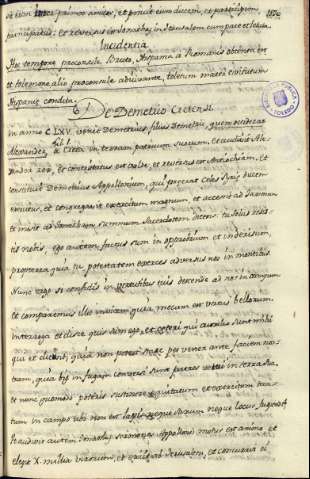 et
participatus: et reversus est Jonathas in Jerusalem cum pace et letitia.
Incidentia
Hoc tempore proconsule Bruto, Hispania a Romanis obtenta est
et Ptolemone alio proconsule adiuvante, toletum mater civitatum
Hispanie condita.
De Demetrio Cretensi
in anno CLXV. venit Demetrius filius Demetrii, quem occiderat
Alexander, a Creta in terram patrum suorum, et audivit Ale-
xander rex, et contristatus est valde, et reversus est Antiochiam, et
constituit Demetrius Appollonium, qui preerat Celes Syrie ducem
exercitus, et congregavit exercitum magnum et accessit ad Jamniam
et misit ad Jonatham summum Sacerdotem dicens: tu solus resis-
tis nobis, ego autem factus sum in opprobrium et inderisum,
propterea quia tu potestatem exerces adversus nos in montibus
Nunc ergo si confidis in virtutibus tuis descende ad nos in campum
et comparemus illic invicem, quia mecum est virtus bellorum.
Interroga et disce quis sum ego, et ceteri qui auxilio sunt mihi
qui et dicunt, quia non potest stare pes vester ante faciem nos-
tram, quia bis in fugam conversi sunt patres vestri in terra sua
et nunc quomodo poteris sustinere equitatum et exercitum tan-
tum in campo ubi non est lapis, neque saxum, neque locus fugiendi?
Ut audivit autem Jonathas sermones Appollonii motus est animo et
elegit X. millia virorum, et exiit ab Jerusalem, et concurrit ei